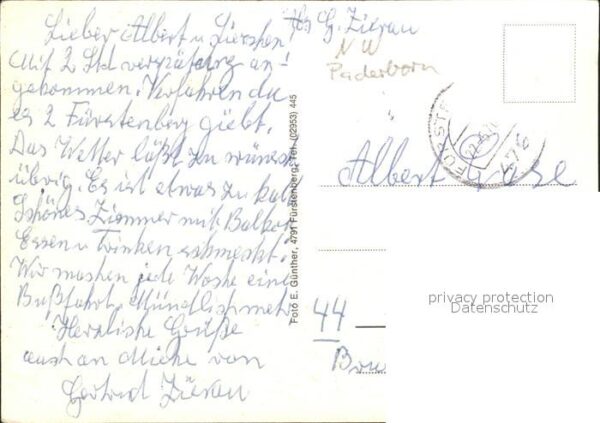 Lieber Albert u. Lieschen!
Mit 2 Std verspätung an-
gekommen. Verfahren da
es 2 Fürstenberg giebt.
Das Wetter läßt zu wünsc
übrig. Es ist etwas zu kal
Schönes Zimmer mit Balkon
Essen u Trinken schmeckt.
Wir machen jede Woche eine
Bußfahrt. Mündlich mehr
Herzliche Grüße
auch an Mieke von
Gertrud Zieran
Foto E. Günther, 4791 Fürstenberg, Tel. (02953) 445
G. Zieran
NW
Paderborn
FÜRSTE
4791
Albert
44
privacy protection
Datenschutz